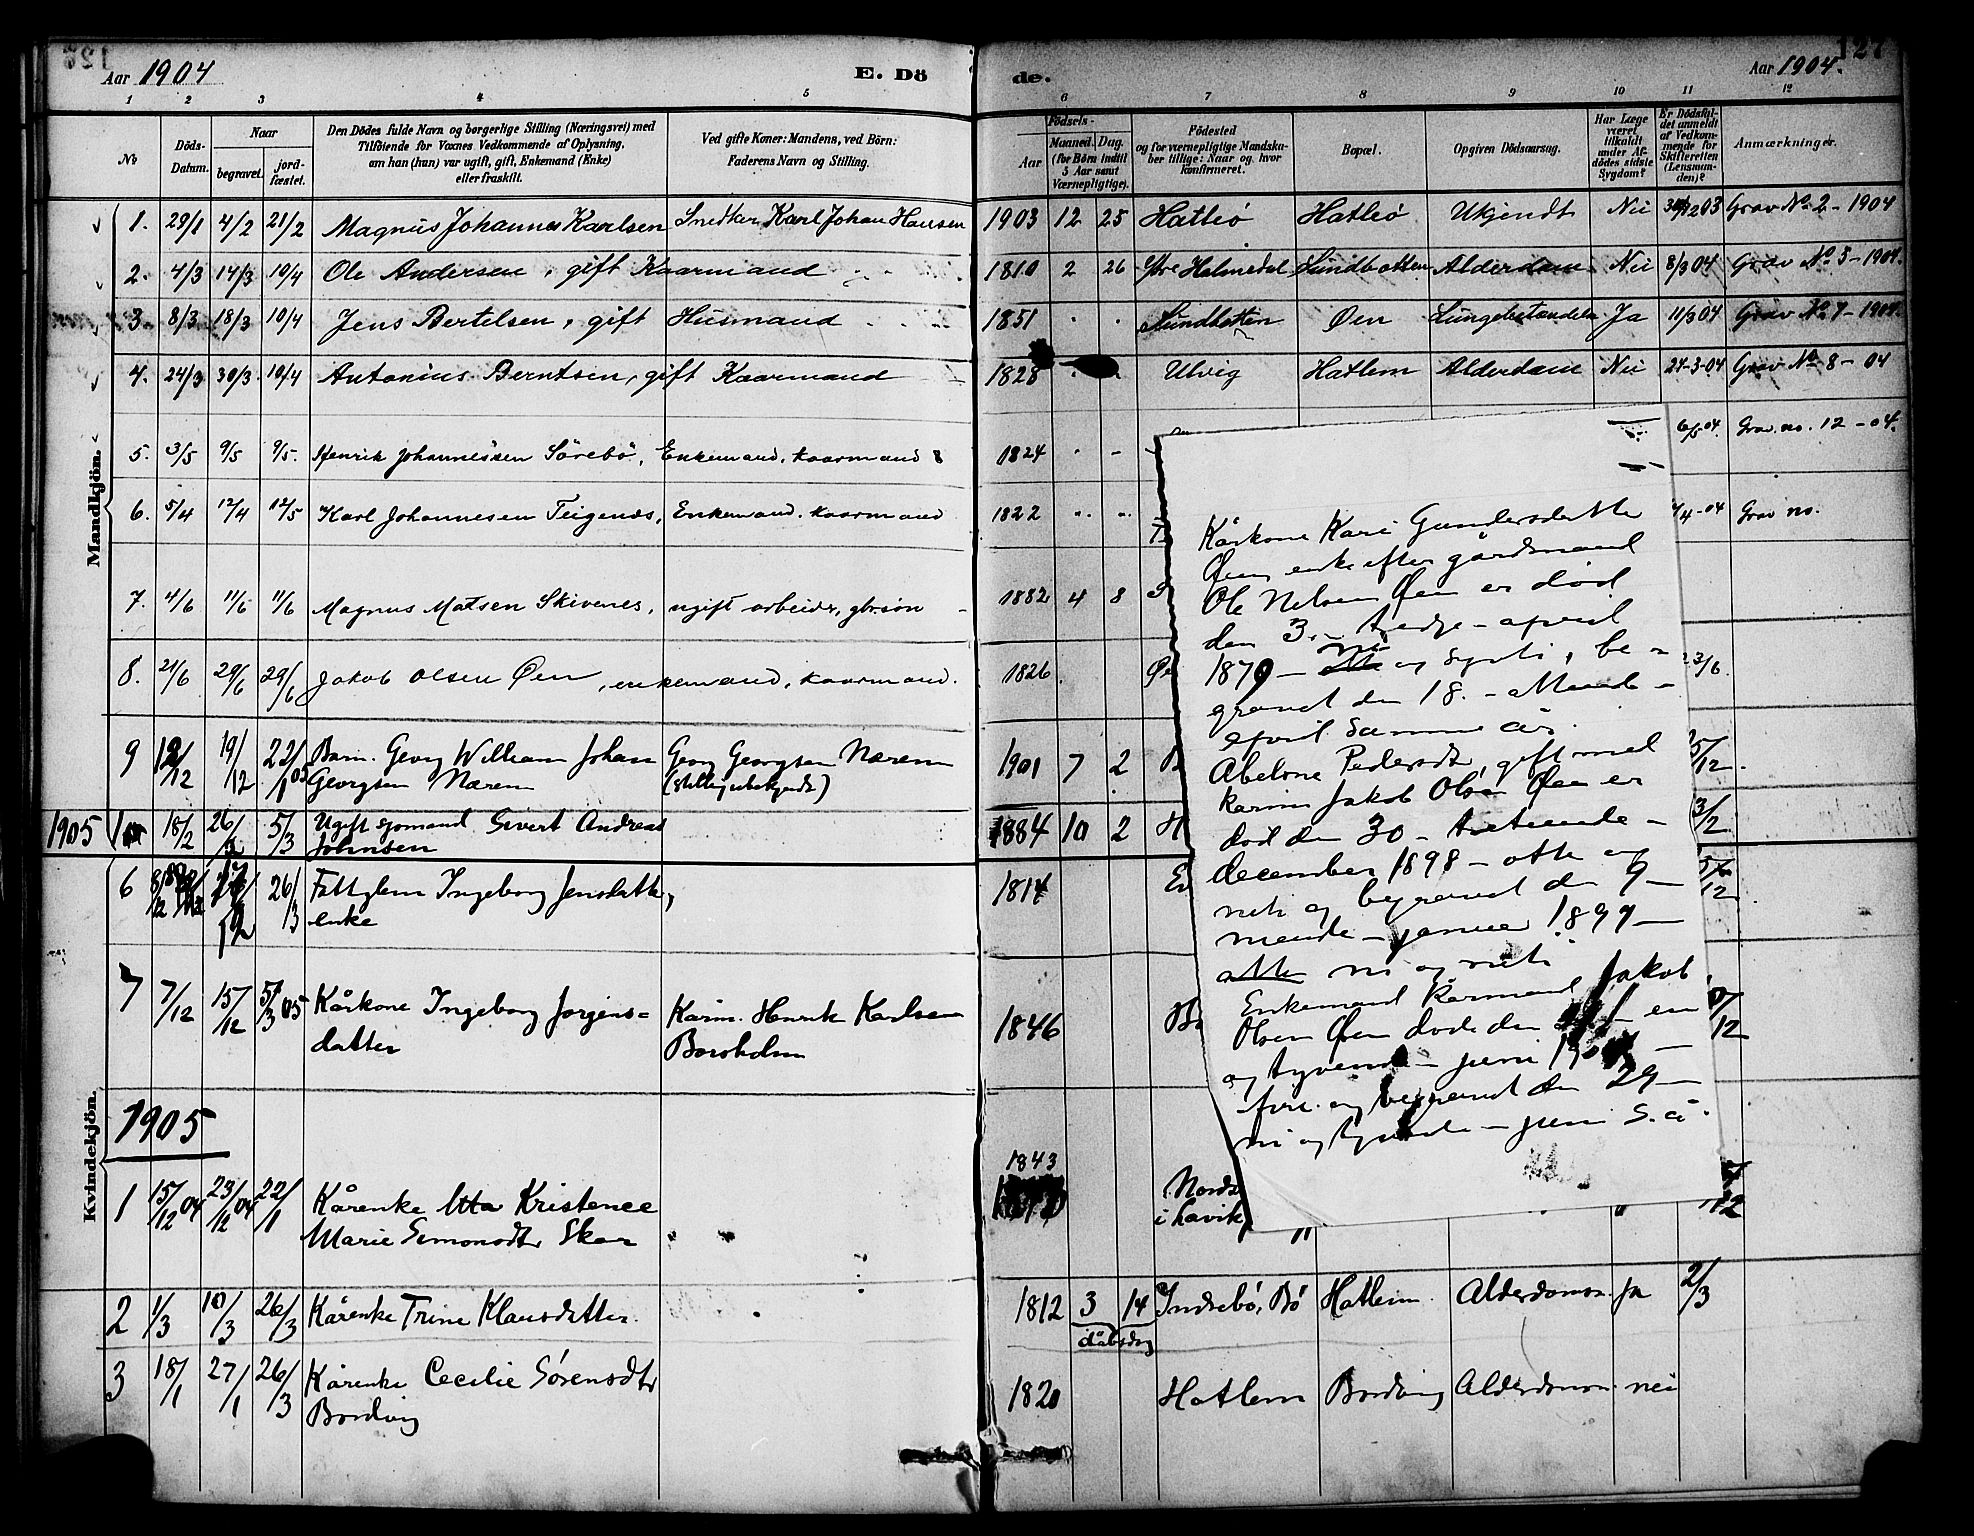 127
Aar 1904
E. Dö
de.
Aar 1904.
1 2 3 4 5 6 7 8 9 10 11 12
No
Döds-Datum.
Naar
begravet.
jord-fæstet.
Den Dödes fulde Navn og borgerlige Stilling (Næringsvei) med
Tilföiende for Voxnes Vedkommende af Oplysning,
om han (hun) var ugift, gift, Enkemand (Enke)
eller fraskilt.
Ved gifte Koner: Mandens, ved Börn:
Faderens Navn og Stilling.
Födsels-
Aar
Maaned. Dag.
(for Börn indtil
5 Aar samt
Værnepligtige).
Födested
og for værnepligtige Mandska-
ber tillige: Naar og hvor
konfirmeret.
Bopæl.
Opgiven Dödsaarsag.
Har Læge
været
tilkaldt
under Af-
dödes sidste
Sygdom?
Er Dödsfal-
det anmeldt
af Vedkom-
mende for
Skifteretten
(Lensman-
den)?
Anmærkninger.
Mandkjön.
1. 29/1 4/2 21/2 Magnus Johannes Karlsen Snedker Karl Johan Hansen 1903 12 25 Hatleö Hatleö Ukjendt Nei Grav No 2 - 1904
2. 4/3 14/3 10/4 Ole Andersen, gift Kaarmand 1810 2 26 Ytre Holmedal Sundbotten Alderdom Nei 8/3 04 Grav No 3 - 1904.
3. 8/3 18/3 10/4 Jens Bertelsen, gift Husmand 1851 Sundbotten Øen Lungebetændelse Ja 11/3 04 Grav No 7 - 1904.
4. 24/3 30/3 10/4 Antonius Berntsen, gift Kaarmand 1828 Ulvig Hatlem Alderdom Nei 24-3-04 Grav No 8 - 04
5. 3/5 9/5 9/5. Henrik Johannessen Sörebö, Enkemand, kaarmand 1824 6/5 04. Grav. no. 12 - 04.
6. 5/4 12/4 12/5 Karl Johannesen Teigenes, Enkemand. kaarmand 1822 /4-04 Grav no.
7. 4/6 11/6 11/6 Magnus Matsen Skivenes, ugift arbeider, gbrsön 1882 4 8
8. 21/6 29/6 29/6 Jakob Olsen Øen, enkemand, kaarmand. 1826 Øe 23/6.
9 12/12 19/12 22/1 05 Barn. Georg William Johan Georg Georgsen Nærem 1901 7 2 5/12.
Georgsen Nærem (stilling ubekjendt)
1905 18/2 26/2 5/3 Ugift sjomand Sivert Andreas 1884 10 2 H 3/2
Johnsen
Kvindekjön.
6 26/3 Ingeborg Jensdatter, 1814
enke
7 7/12 15/12 5/3 05 Kårkone Ingeborg Jorgens= Kårm. Henrik Karlsen 1846 12
datter Borsholm
1905
1 15/12 04 23/12 04 22/1 Kårenke Kristence 1843 Nords
Marie Simonsdtr Skor i Lavik,
2 1/3 10/3 26/3 Kårenke Trine Klausdatter. 1812 3 14 Indrebö, Bö Hatlem Alderdomsv. ja 2/3
dåbsdag
3 18/1 27/1 26/3 Kårenke Cecilie Sörensdtr 1820 Hatlem Bordvig Alderdomsv. nei
Bordvig
Kårkone Kari Gundersdatte
Øen, enke efter gårdmand
Ole Nilsen Øen er död
den 3. - tredje - april
ni
1879 - otte og sytti, be=
gravet den 18. - attende -
april samme år.
Abelone Pedersdtr, gift med
karm Jakob Olsen Øen er
död den 30 - trettiende -
december 1898 - otte og
neti og begravet den 9 -
niende - januar 1899 -
otte ni og neti
Enkemand kårmand Jakob
Olsen Øen döde den 21 - en
og tyvende - juni 1904 -
fire. og begravet den 29 -
ni og tyvende - juni s. å.